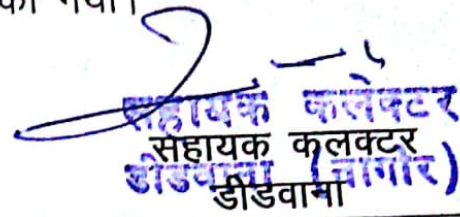 की गयी।
सहायक कलेक्टर
सहायक कलक्टर
डीडवाना (नागौर)
डीडवाना